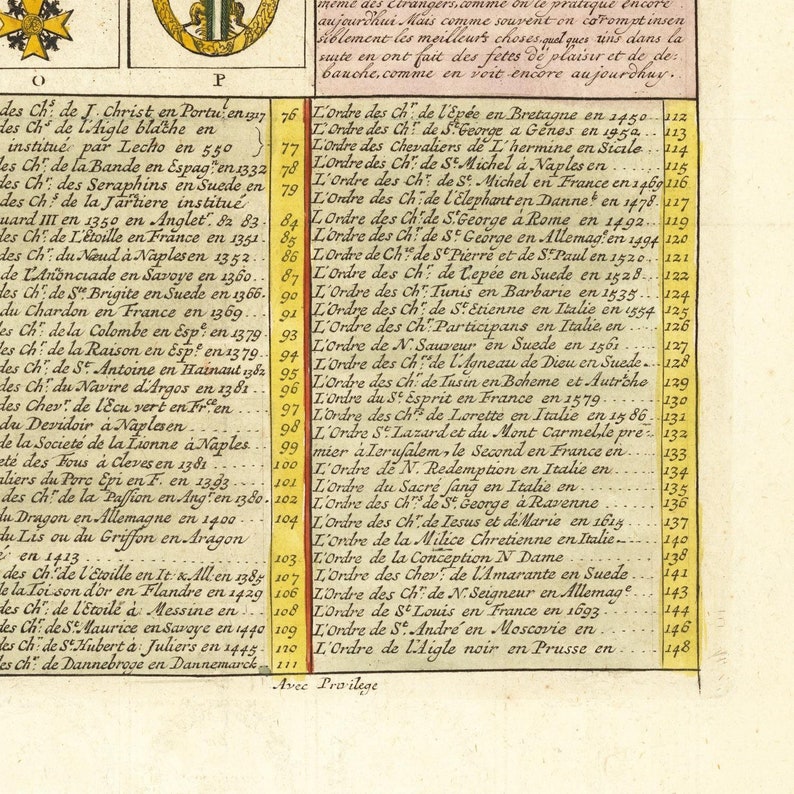 meme des Etrangers, comme on le pratique encore
aujourd'hui Mais comme souvent on corromptinsen
siblement les meilleurs choses, quelques uns dans la
suite en ont fait des fetes de plaisir et de de-
bauche, comme en voit encore aujourdhuy.
O P
des Ch.s de J. Christ en Portu.l en 1317 76
des Ch.s de l'Aigle blãche en
institué par Lecho en 550 } 77
des Ch.r de la Bande en Espag.n en 1332 78
des Ch.r des Seraphins en Suede en 79
des Ch.s de la Jartiere institué
uard III en 1350 en Anglet.r 82 83 . 84
des Ch.r de L'Etoille en France en 1351 . 85
des Ch.r du Nœud à Naples en 1352 . . 86
de L'Anõnciade en Savoye en 1360 . . . 87
des Ch.r de S.te Brigite en Suede en 1366 . 90
du Chardon en France en 1369 . . . 91
es Ch.r de la Colombe en Esp.e en 1379 93
des Ch.r de la Raison en Esp.e en 1379 . . 94
des Ch.r de S.t Antoine en Hainaut 1382 95
des Ch.r du Navire d'Argos en 1381 . . 96
des Chev.r de l'Ecu vert en Fr.ce en . . . 97
du Devidoir à Naples en . . . . . . . 98
de la Societe de la Lionne à Naples . . . 99
eté des Fous à Cleves en 1381 . . . . . 100
aliers du Porc Epi en F. en 1393 . . . . 101
des Ch.r de la Passion en Ang.r en 1380 . 102
du Dragon en Allemagne en 1400 . . . . 104
du Lis ou du Griffon en Aragon
é en 1413 . . . . . . . . . . . . 103
des Ch.r de l'Etoille en It. & All. en 1385 107
de la Toison d'or en Flandre en 1429 106
des Ch.r de l'Etoilé à Messine en . . . 108
des Ch.r de S.t Maurice en Savoye en 1440 109
des Ch.r de S.t Hubert à Juliers en 1445 . . 110
des Ch.r de Dannebroge en Dannemarck 111
L'Ordre des Ch.r de l'Epée en Bretagne en 1450 . . 112
L'Ordre des Ch.r de S.t George a Genes en 1452 . . . 113
L'Ordre des Chevaliers de L'hermine en Sicile . . . 114
L'Ordre des Ch.r de S.t Michel à Naples en . . . . . 115
L'Ordre des Ch.r de S.t Michel en France en 1469 116
L'Ordre des Ch.r de l'Elephant en Danne.k en 1478 . 117
L'Ordre des Ch.r de S.t George à Rome en 1492 . . . 119
L'Ordre des Ch.r de S.t George en Allemag.e en 1494 120
L'Ordre de Ch.rs de S.t Pierre et de S.t Paul en 1520 . . 121
L'Ordre des Ch.r de L'epée en Suede en 1528 . . . 122
L'Ordre des Ch.r Tunis en Barbarie en 1535 . . . . 124
L'Ordre des Ch.r de S.t Etienne en Italie en 1554 125
L'Ordre des Ch.r Participans en Italie, en . . . . 126
L'Ordre de N. Sauveur en Suede en 1561 . . . . 127
L'Ordre des Ch.rs de l'Agneau de Dieu en Suede . . 128
L'Ordre des Ch.r de Tusin en Boheme et Autriche 129
L'Ordre du S.t Esprit en France en 1579 . . . . 130
L'Ordre des Ch.rs de Lorette en Italie en 1586 . . . 131
L'Ordre S.t Lazard et du Mont Carmel, le pre- 132
mier à Ierusalem, le Second en France en . . . . 133
L'Ordre de N. Redemption en Italie en . . . . . 134
L'Ordre du Sacré sang en Italie en . . . . . . . 135
L'Ordre des Ch.rs de S.t George à Ravenne . . . . . 136
L'Ordre des Ch.r de Iesus et de Marie en 1615 . . . 137
L'Ordre de la Milice Chretienne en Italie . . . . . 140
L'Ordre de la Conception N. Dame . . . . . . . 138
L'Ordre des Chev.r de l'Amarante en Suede . . . 141
L'Ordre des Ch.r de N. Seigneur en Allemag.e . . . 143
L'Ordre de S.t Louis en France en 1693 . . . . . 144
L'Ordre de S.t André en Moscovie en . . . . . . 146
L'Ordre de l'Aigle noir en Prusse en . . . . . . . 148
Avec Privilege